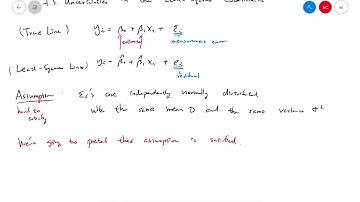 7.3. Uncertainties in the Least-Square Coefficients
(True Line) yᵢ = β₀ + β₁ xᵢ + εᵢ
measurement error
(Least-Square Line) yᵢ = β̂₀ + β̂₁ xᵢ + eᵢ
residual
Assumption : εᵢ's are independently normally distributed
hard to with the same mean 0 and the same variance σ²
satisfy
We're going to pretend this assumption is satisfied.